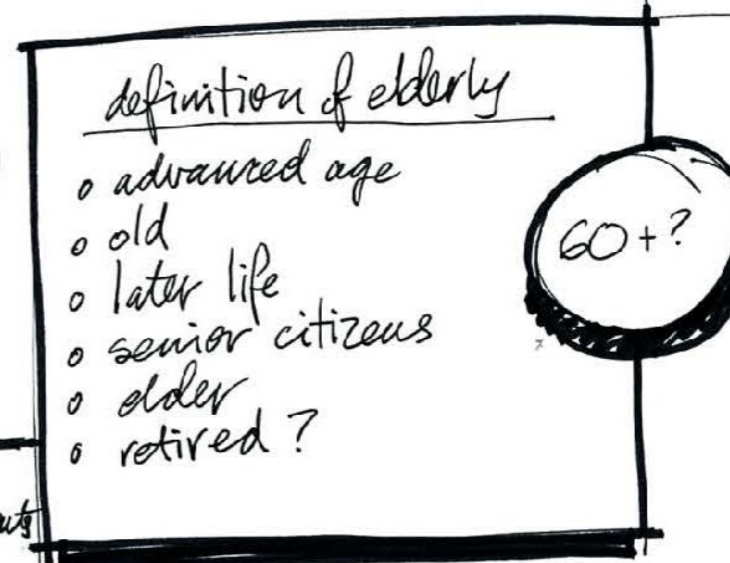 definition of elderly
o advanced age
o old
o later life
o senior citizens
o elder
o retired ?
60+?